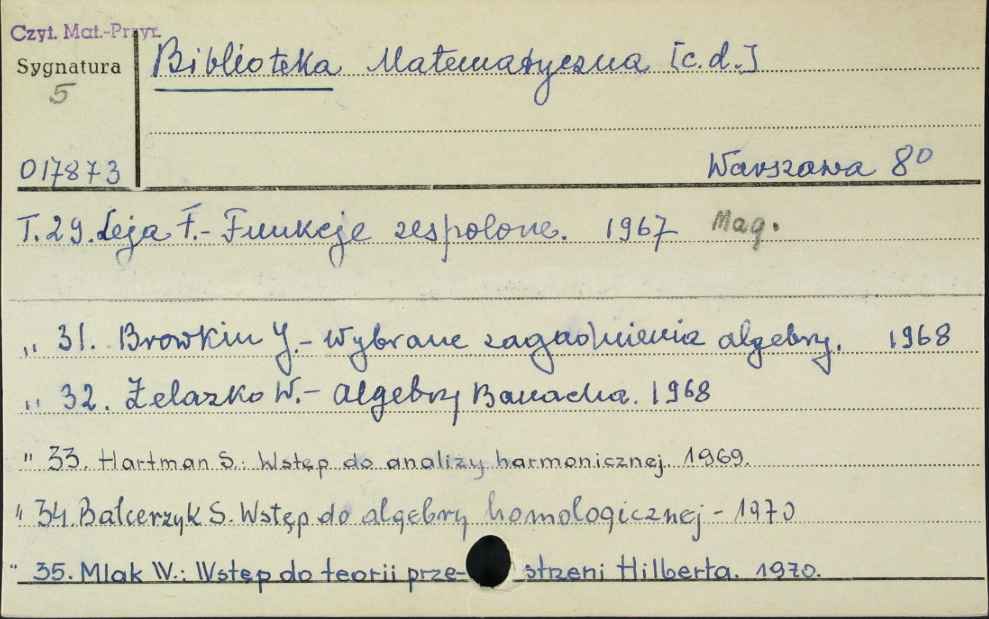 Czyt. Mat.-Przyr.
Sygnatura
5
017873
Biblioteka Matematyczna [c.d.]
Warszawa 8⁰
T. 29. Leja F. - Funkcje zespolone. 1967 Mag.
„ 31. Browkin J. - Wybrane zagadnienia algebry. 1968
„ 32. Żelazko W. - Algebry Banacha. 1968
" 33. Hartman S.: Wstęp do analizy harmonicznej. 1969.
" 34. Balcerzyk S. Wstęp do algebry homologicznej - 1970
" 35. Mlak W.: Wstęp do teorii prze- strzeni Hilberta. 1970.